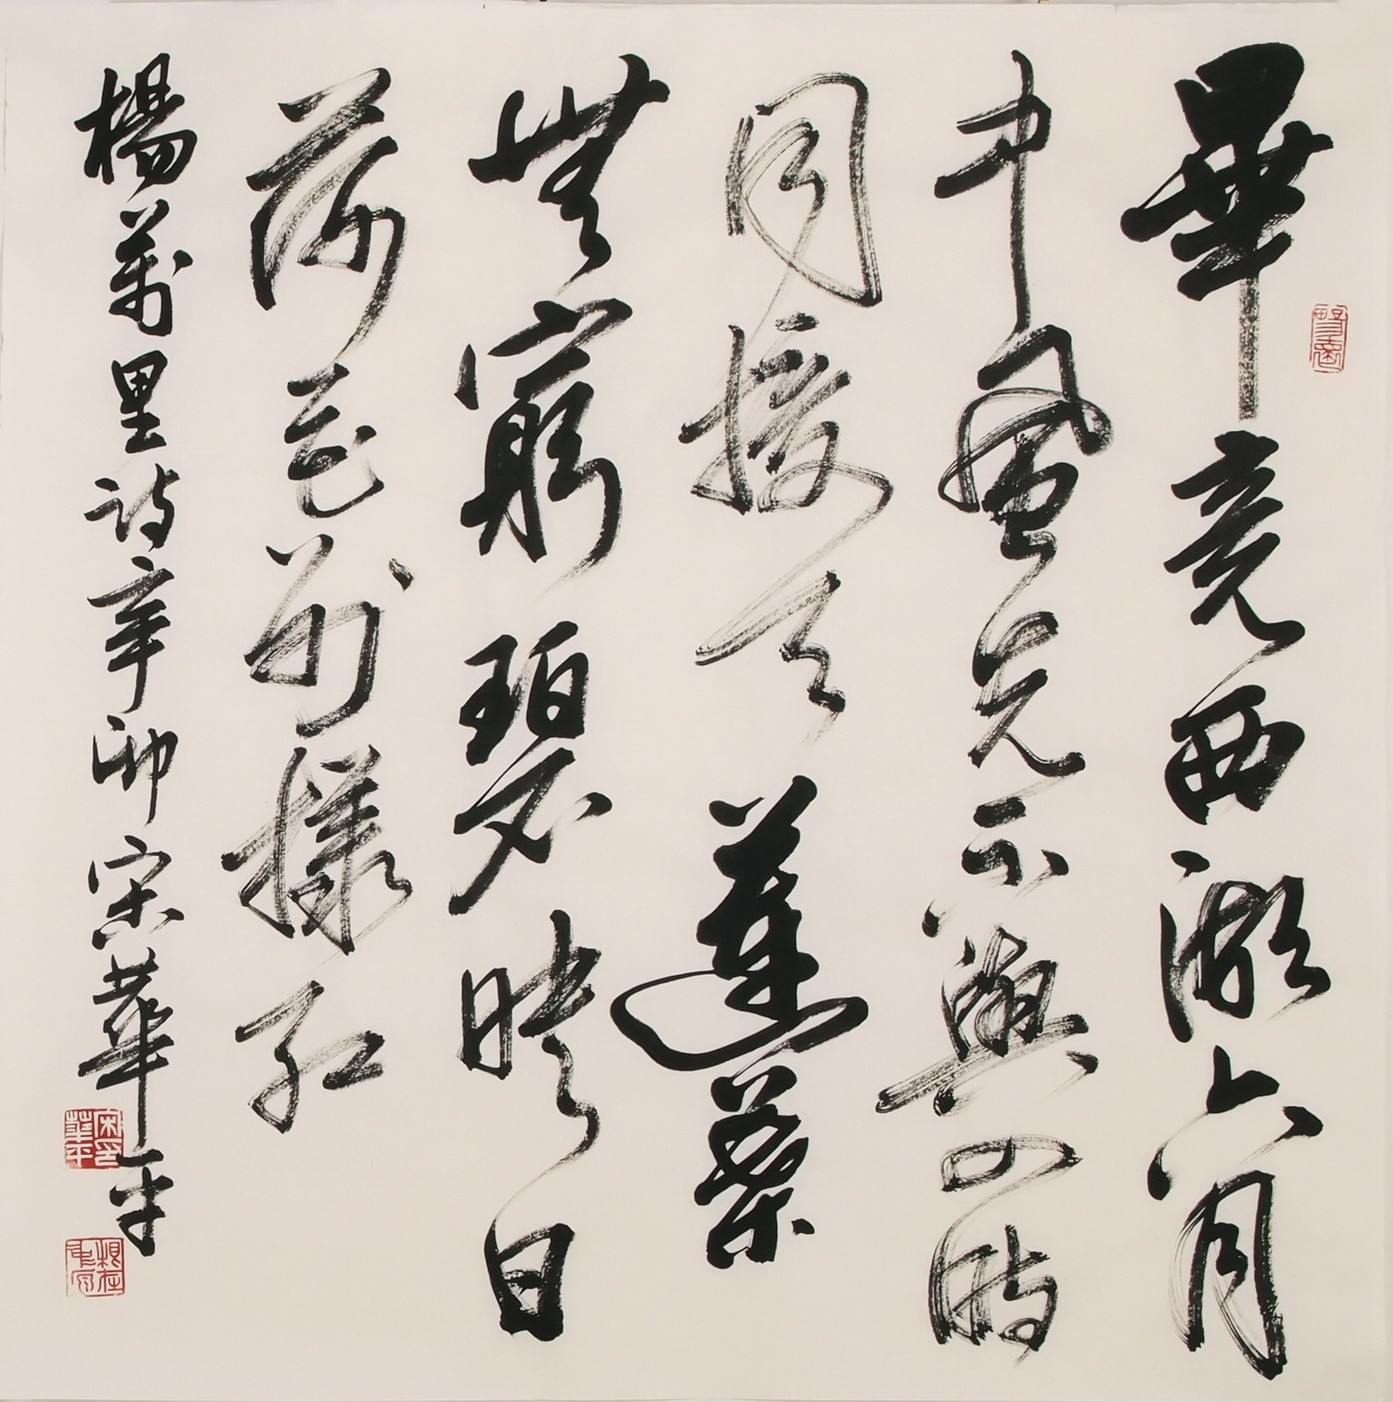 畢竟西湖六月
中風光不與四時
同接天蓮葉
無窮碧映日
荷花別樣紅
楊萬里詩辛卯宋華平
宋華平印